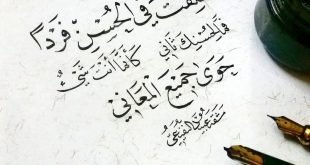 خلقت في الحسن فردا
فما لحسنك ثاني كأنما أنت شيء
حوى جميع المعاني